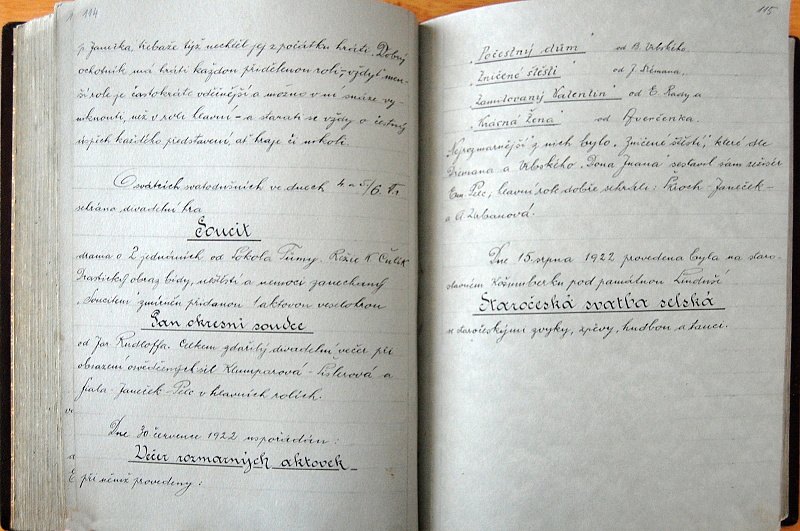 114
p. Janečka třebaže týž nechtěl jej z počátku hráti. Dobrý
ochotník má hráti každou přidělenou roli, vždyť men-
ší role je častokráte vděčnější a možno v ní snáze vy-
niknouti, než v role hlavní – a starati se vždy o čestný
úspěch každého představení, ať hraje či nikoli.
O svátcích svatodušních ve dnech 4. a 5./6. VI.
sehrána divadelní hra
Soucit
drama o 2 jednáních od Sokola Tůmy. Režie K. Čulík
Drastický obraz bídy, neštěstí a nemocí zanechaný
Soucitem zmírněn přidanou 1 aktovou veselohrou
Pan okresní soudce
od Jar. Rudloffa. Celkem zdařilý divadelní večer při
obsazení osvědčených sil Klumparová – Lislerová a
Fiala – Janeček – Pelc v hlavních rolích.
Dne 30 července 1922 uspořádán:
Večer rozmarných aktovek
při němž provedeny:
115
„Počestný dům" od B. Vrbského.
„Zničené štěstí" od J. Dréman
„Zamilovaný Valentin" od E. Rady a
„Krásná žena" od Averčenka.
Nejrozmarnější z nich bylo „Zničené štěstí", které dle
Drémana a Vrbského „Dona Juana" sestavil sám režisér
Em. Pelc, hlavní role dobře sehráli: Škroch – Janeček –
a A. Urbanová.
Dne 15 srpna 1922 provedena byla na staro-
slavném Košumberku pod památnou Linduší
Staročeská svatba selská
se staročeskými zvyky, zpěvy, hudbou a tanci.